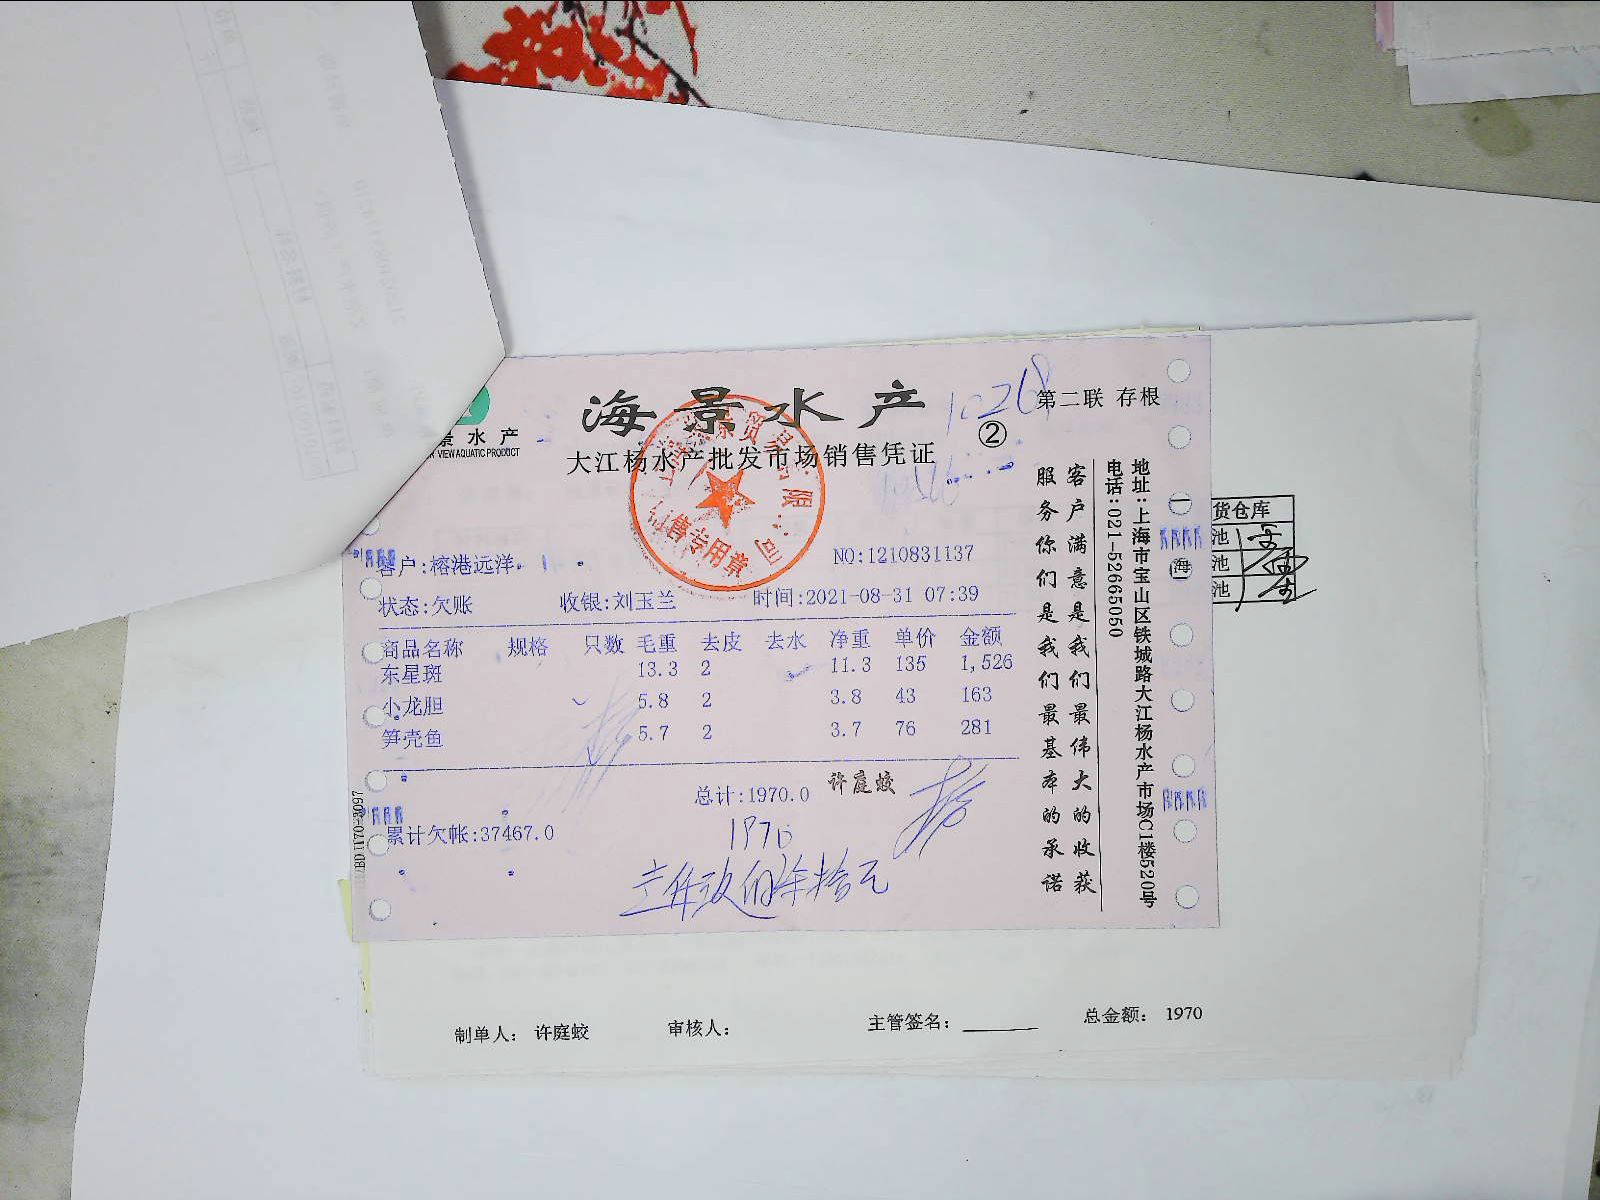 海景水产
第二联 存根
1026
②
景水产
VIEW AQUATIC PRODUCT
大江杨水产批发市场销售凭证
售专用章
客户:榕港远洋
NO:1210831137
状态:欠账 收银:刘玉兰 时间:2021-08-31 07:39
商品名称 规格 只数 毛重 去皮 去水 净重 单价 金额
东星斑 13.3 2 11.3 135 1,526
小龙胆 5.8 2 3.8 43 163
笋壳鱼 5.7 2 3.7 76 281
总计:1970.0 许庭蛟
累计欠帐:37467.0
1970
壹仟玖佰柒拾元
客户满意是我们最伟大的收获
服务你们是我们最基本的承诺
地址:上海市宝山区铁城路大江杨水产市场C1楼520号
电话:021-52665050
海
货仓库
池
池
池
制单人: 许庭蛟 审核人: 主管签名: 总金额: 1970